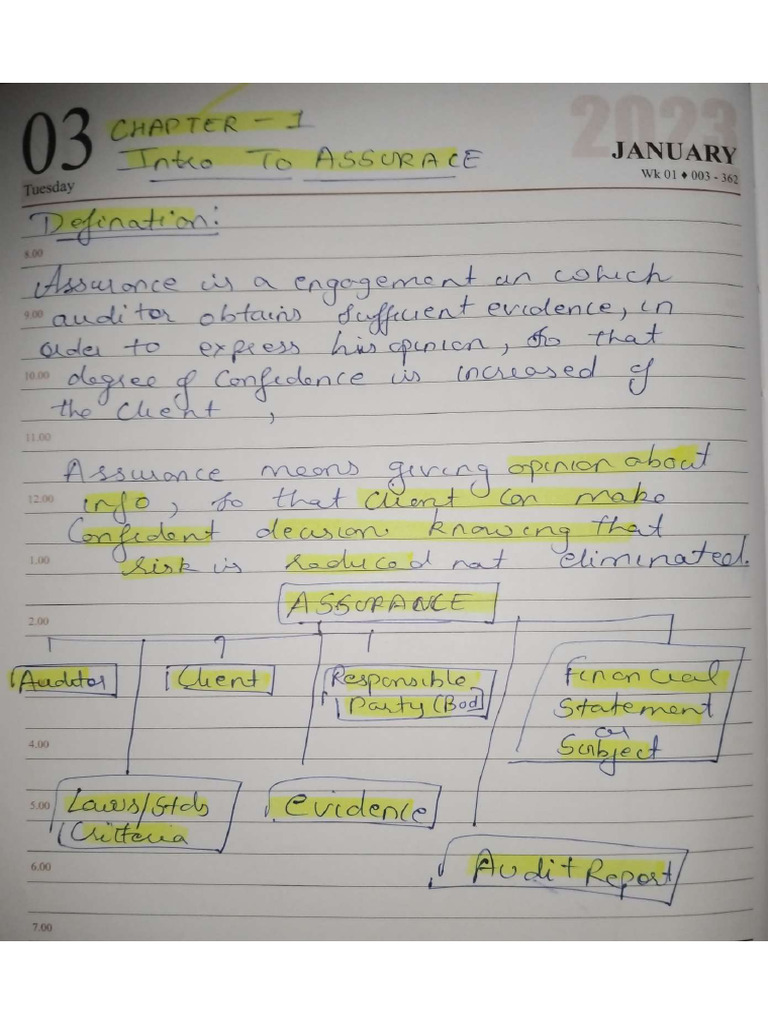 03
Tuesday
2023
JANUARY
Wk 01 ♦ 003 - 362
CHAPTER - 1
Intro To ASSURACE
Defination:
8.00
Assurance is a engagement in which
9.00 auditor obtains sufficient evidence, in
order to express his opinion, so that
10.00 degree of Confedence is increased of
the Client ,
11.00
Assurance means giving opinion about
12.00 info, so that client can make
Confident decision knowing that
1.00 risk is reduced not eliminated.
ASSURANCE
2.00
Auditor
Client
Responsible
Party (Bod)
Financial
Statement
or
Subject
4.00
5.00
Laws/Stds
Critteria
evidence
6.00
Audit Report
7.00